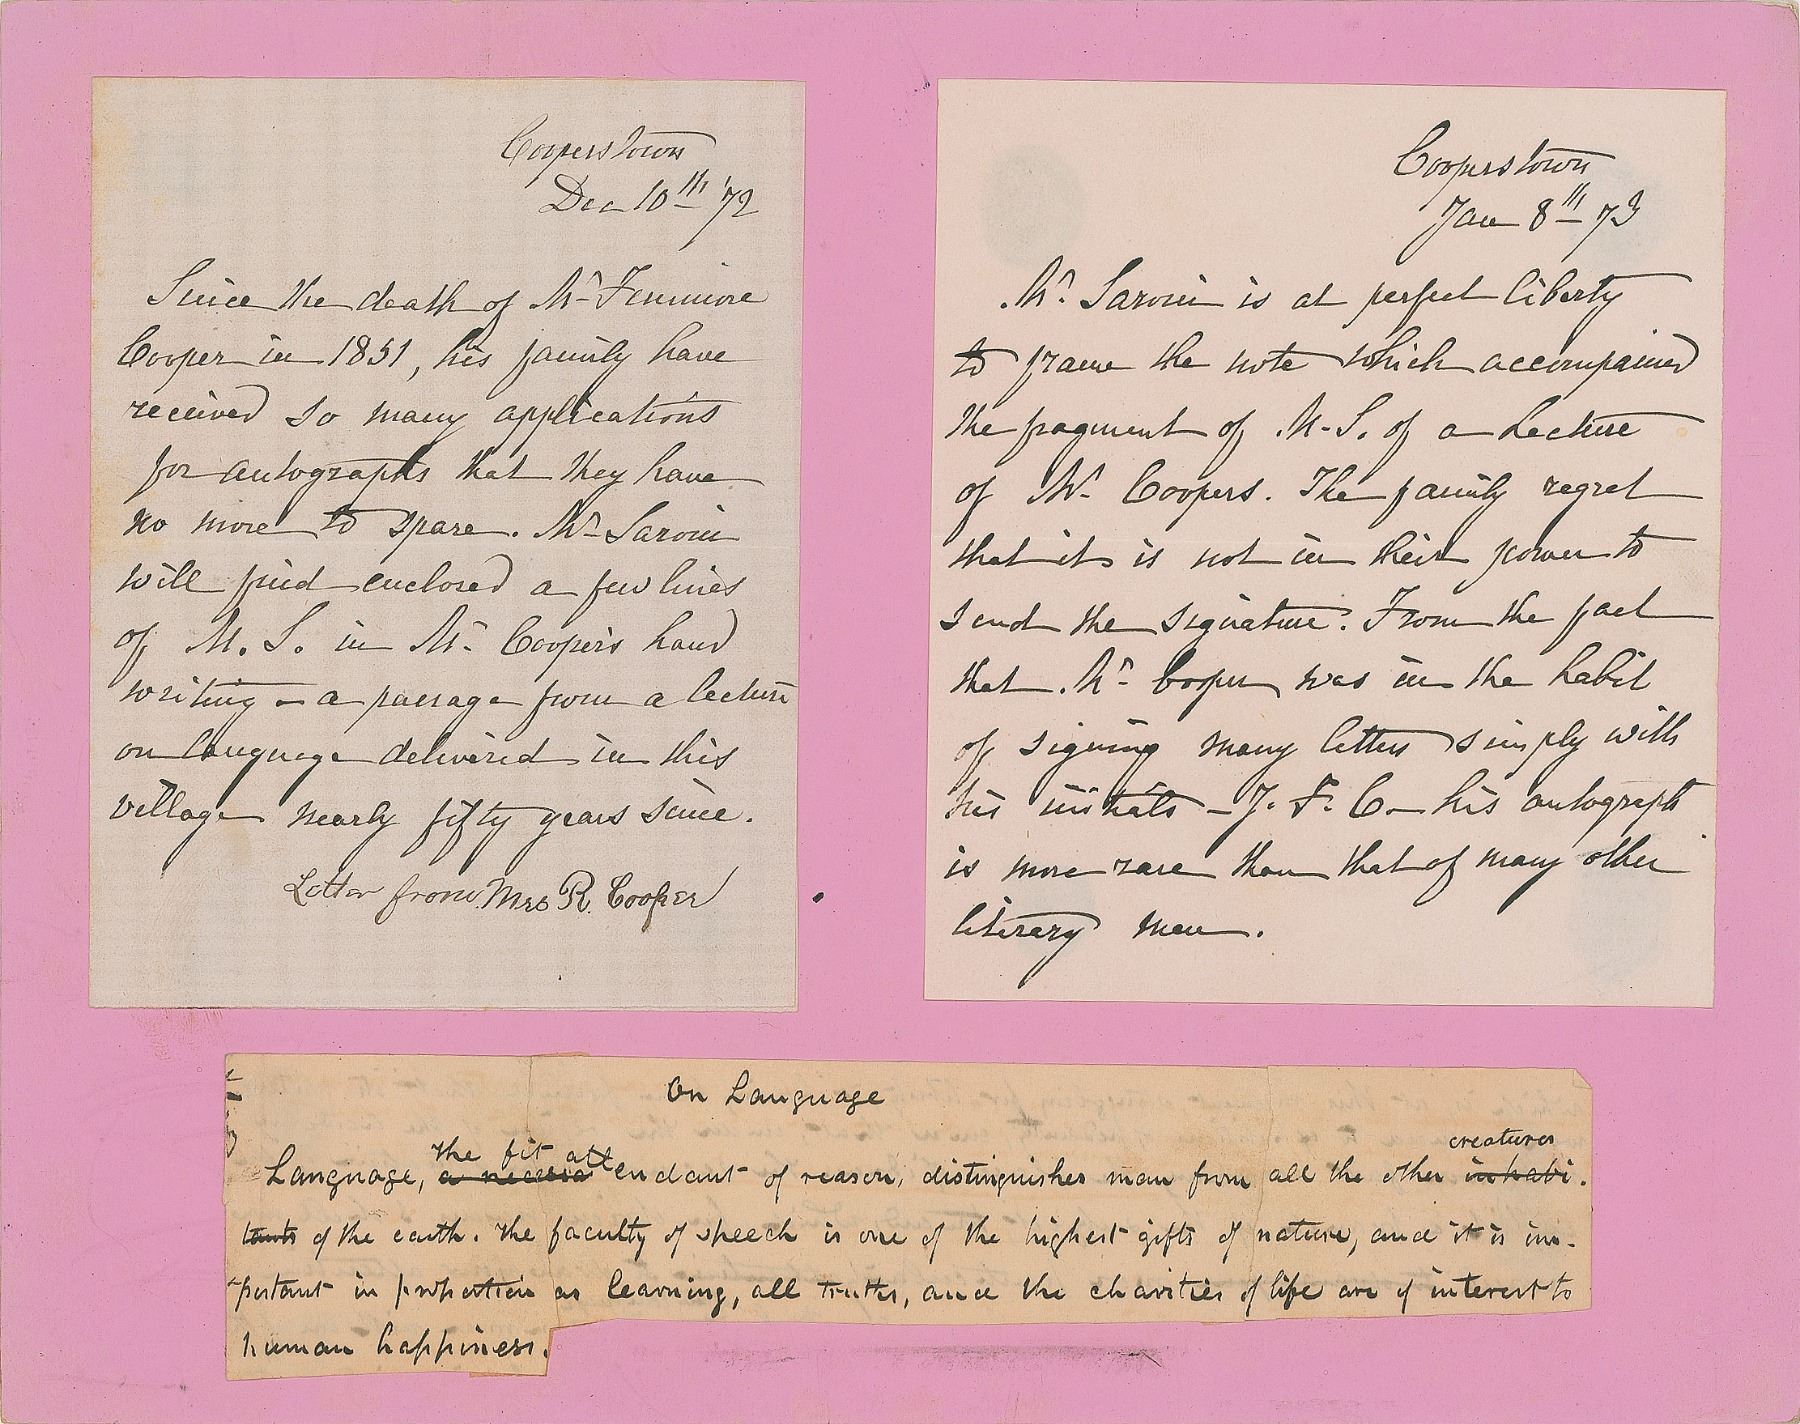 Cooperstown
Dec 10th '72
Since the death of Mr Fenimore
Cooper in 1851, his family have
received so many applications
for autographs that they have
no more to spare. Mr Saroni
will find enclosed a few lines
of M. S. in Mr Cooper's hand
writing - a passage from a lecture
on language delivered in this
village nearly fifty years since.
Letter from Mrs R. Cooper
Cooperstown
Jan 8th 73
Mr. Saroni is at perfect liberty
to frame the note which accompanied
the fragment of M.S. of a Lecture
of Mr Coopers. The family regret
that it is not in their power to
send the signature. From the fact
that Mr Cooper was in the habit
of signing many letters simply with
his initials - J. F. C. - his autograph
is more rare than that of many other
literary men.
On Language
the fit att creatures
Language, a necessa endant of reason, distinguishes man from all the other inhabi-
tants of the earth. The faculty of speech is one of the highest gifts of nature, and it is im-
portant in proportion as learning, all truths, and the charities of life are of interest to
human happiness.